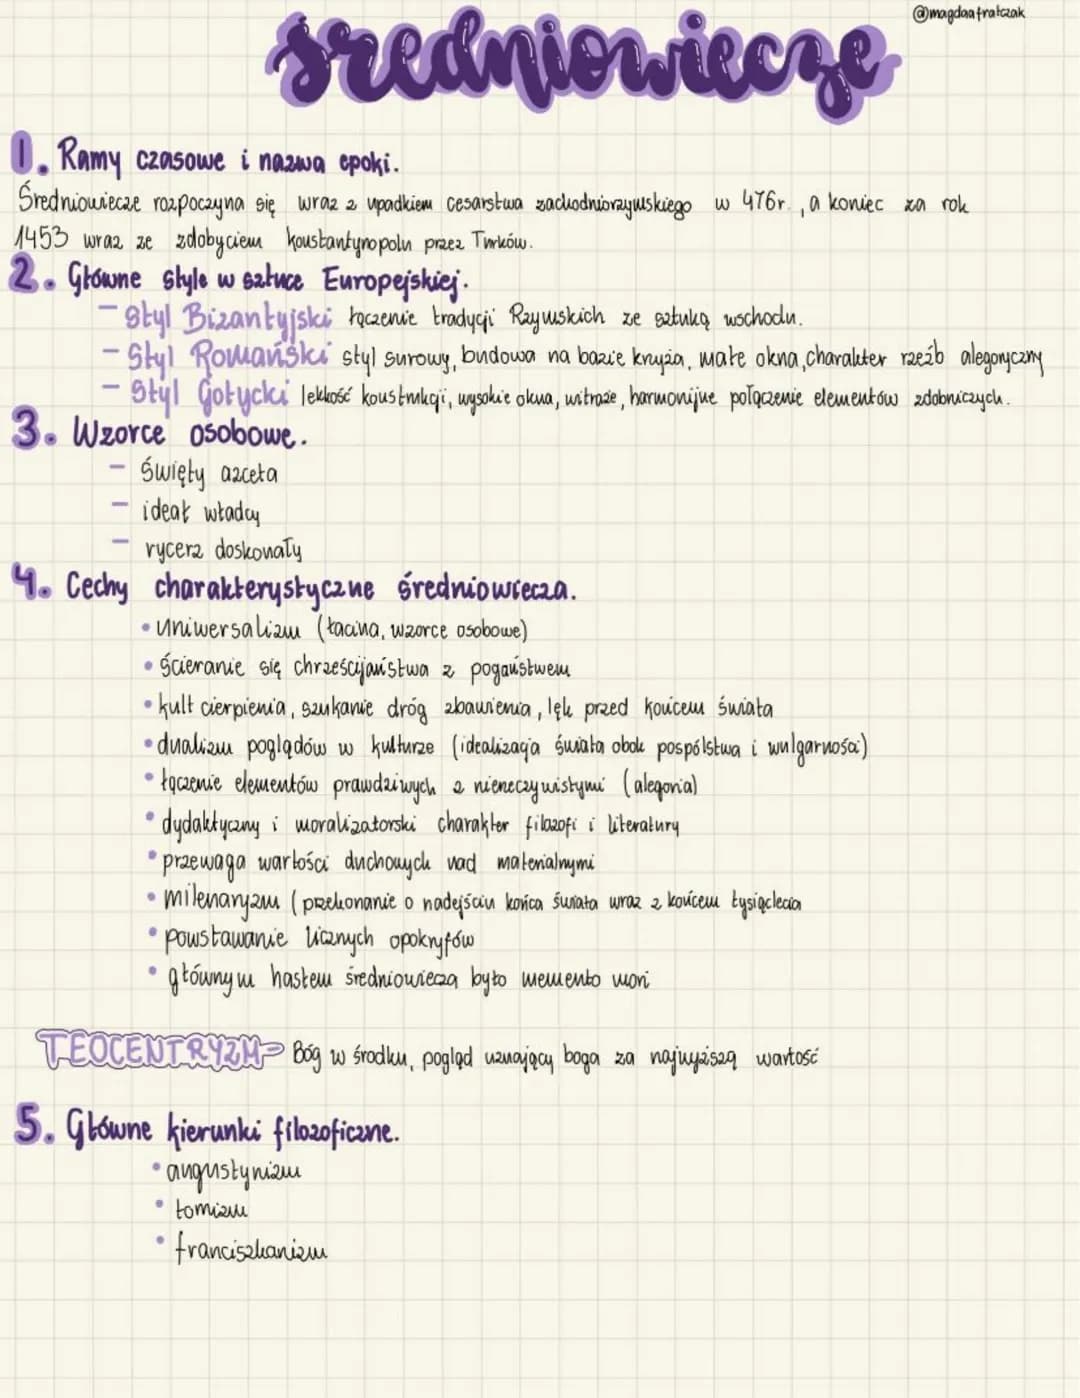 @magdaafratczak
średniowiecze
1. Ramy czasowe i nazwa epoki.
Średniowiecze rozpoczyna się wraz z upadkiem cesarstwa zachodniorzymskiego w 476r., a koniec za rok
1453 wraz ze zdobyciem konstantynopolu przez Turków.
2. Główne style w sztuce Europejskiej.
- Styl Bizantyjski łączenie tradycji Rzymskich ze sztuką wschodu.
- Styl Romański styl surowy, budowa na bazie krzyża, małe okna, charakter rzeźb alegoryczny
- Styl Gotycki lekkość konstrukcji, wysokie okna, witraże, harmonijne połączenie elementów zdobniczych.
3. Wzorce osobowe.
- Święty azceta
- ideał władcy
- rycerz doskonały
4. Cechy charakterystyczne średniowiecza.
• uniwersalizm (łacina, wzorce osobowe)
• ścieranie się chrześcijaństwa z pogaństwem
• kult cierpienia, szukanie dróg zbawienia, lęk przed końcem świata
• dualizm poglądów w kulturze (idealizacja świata obok pospólstwa i wulgarności)
• łączenie elementów prawdziwych z nierzeczywistymi (alegoria)
• dydaktyczny i moralizatorski charakter filozofi i literatury
• przewaga wartości duchowych nad materialnymi
• milenaryzm (przekonanie o nadejściu końca świata wraz z końcem tysiąclecia
• powstawanie licznych opokryfów
• głównym hasłem średniowiecza było memento mori
TEOCENTRYZM- Bóg w środku, pogląd uznający boga za najwyższą wartość
5. Główne kierunki filozoficzne.
• augustynizm
• tomizm
• franciszkanizm